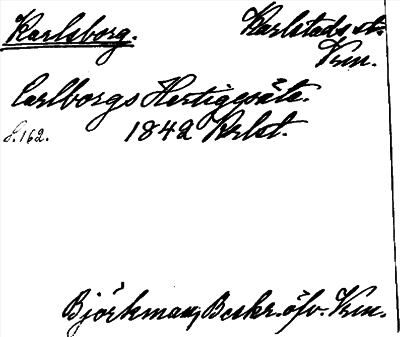 Karlsborg. Karlstads st.
Vrm.
Carlborgs Hertigesäte.
s. 162. 1842 Krlst.
Björkman, Beskr. öfv. Vrm.